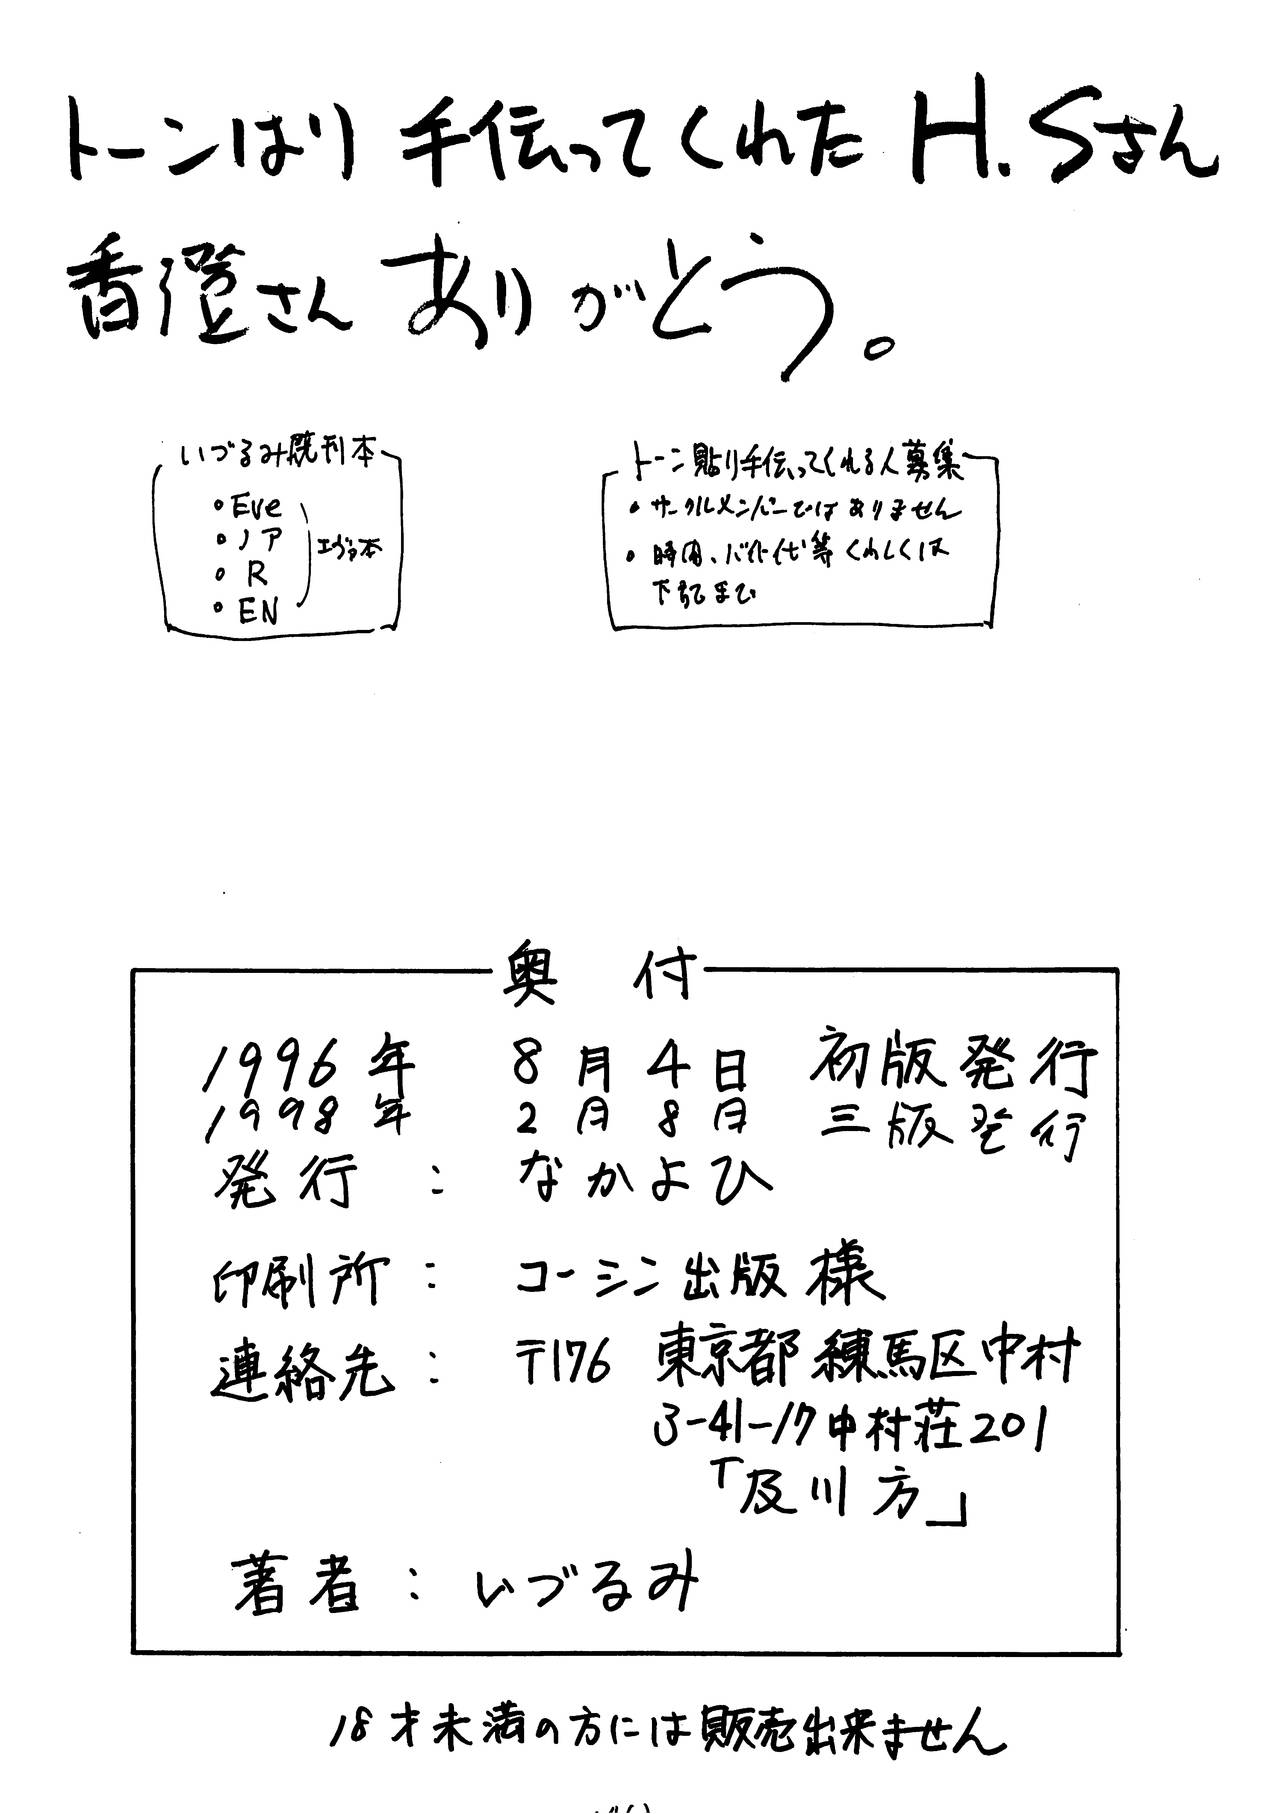 トーンはり 手伝ってくれた H.Sさん
香澄さん ありがとう。
いづるみ既刊本
• Eve
• ノア
• R
• EN
エヴァ本
トーン貼り手伝ってくれる人募集
• サークルメンバーではありません
• 時間、バイト代等くわしくは
下記まで
奥 付
1996年 8月4日 初版発行
1998年 2月8日 三版発行
発行 : なかよひ
印刷所 : コーシン出版 様
連絡先 : 〒176 東京都練馬区中村
3-41-17 中村荘201
「及川方」
著者 : いづるみ
18才未満の方には販売出来ません